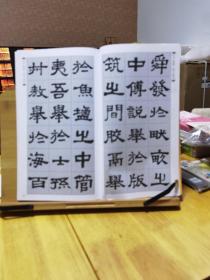 舜發於畎畝之
中傅說舉於版
築之間膠鬲舉
於魚鹽之中管
夷吾舉於士孫
叔敖舉於海百